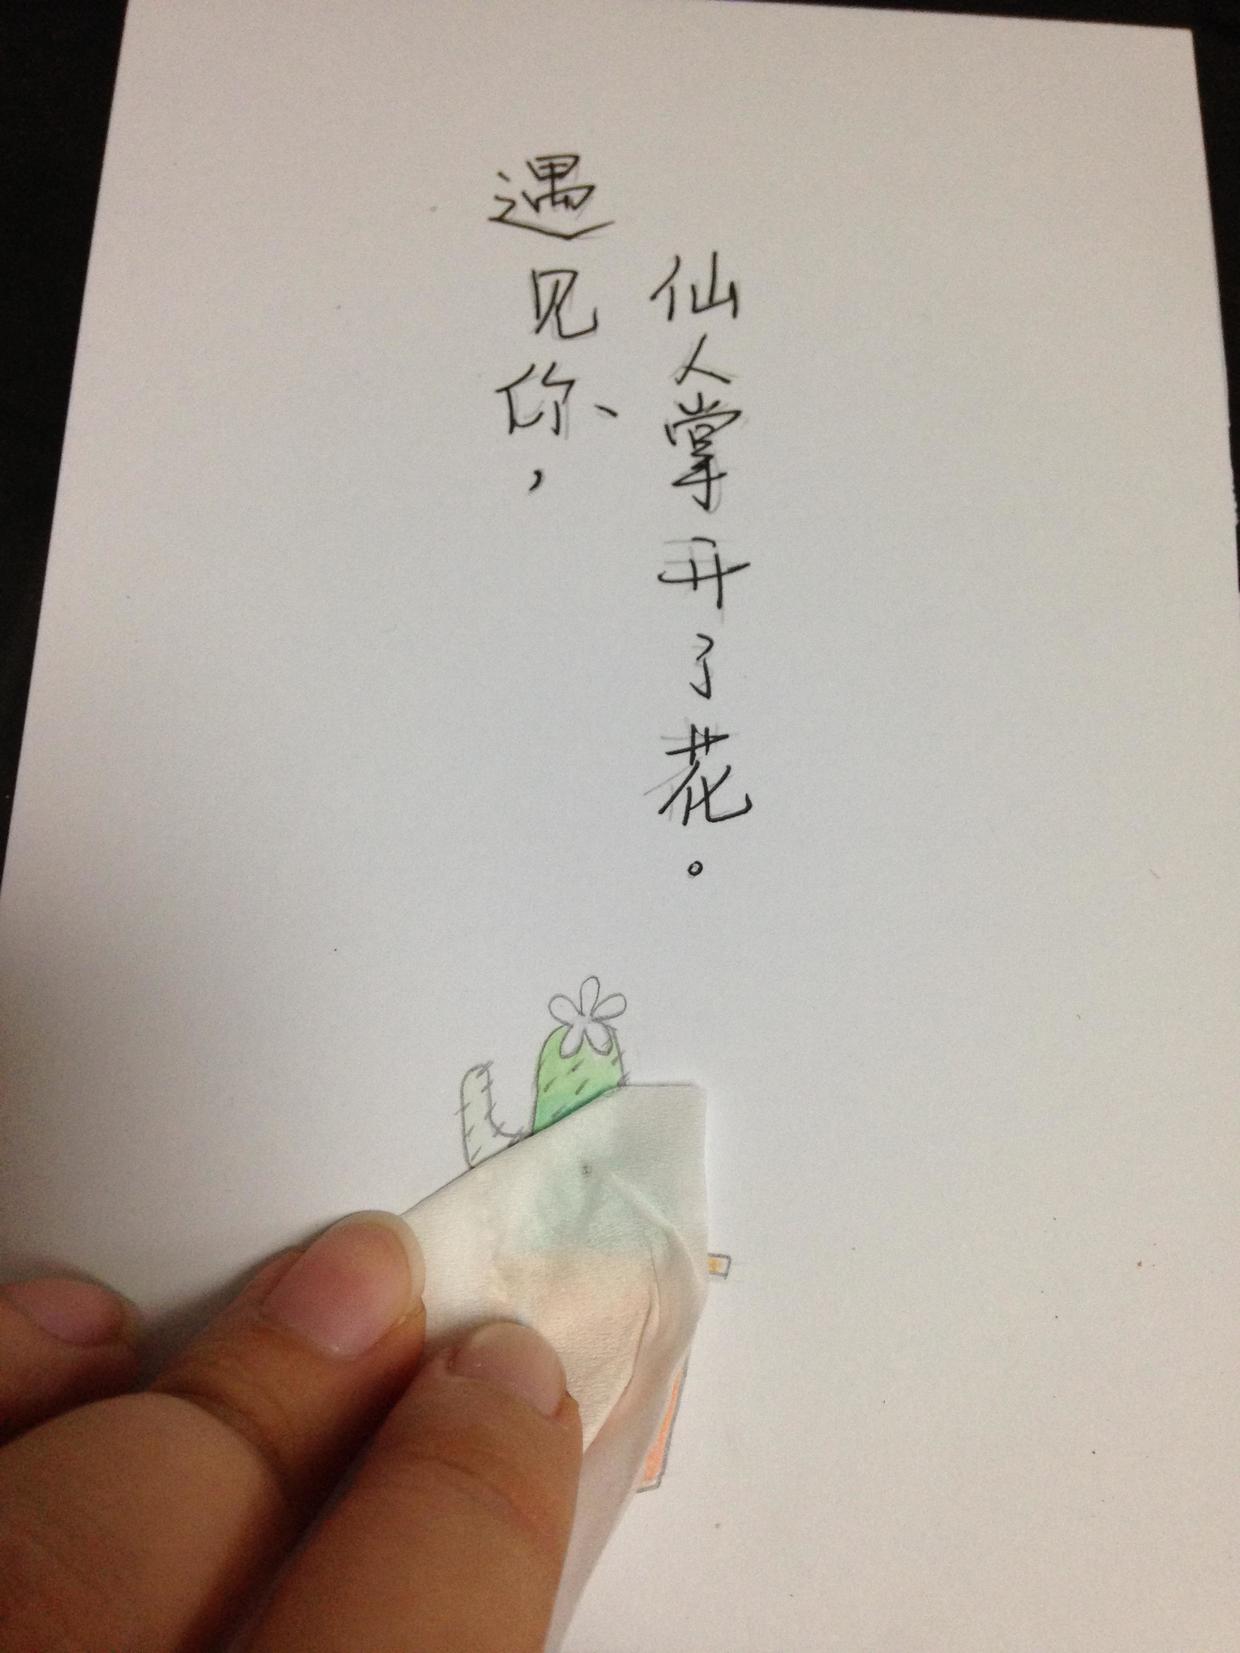 遇见你，
仙人掌开了花。